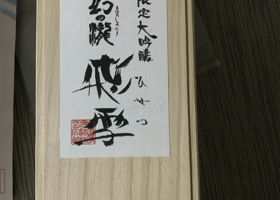 限定大吟醸
幻の瀧
まぼろしのたき
飛雪
ひせつ